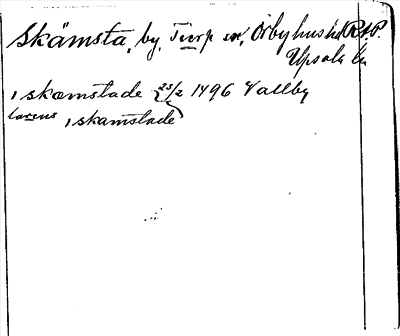 Skämsta, by, Tierp sn, Örbyhus hd R.A.P.
Upsala län
i skæmstade 23/2 1496 Vallby
laurens i skamstade